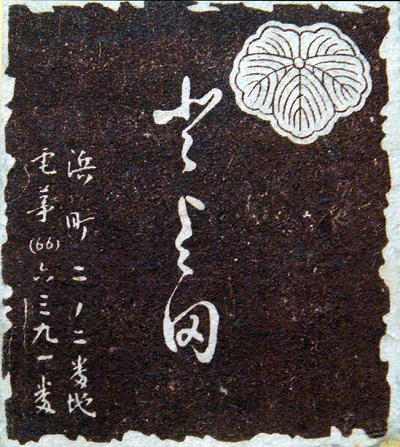 田
浜町二ノ二番地
電話(66)六三九一番